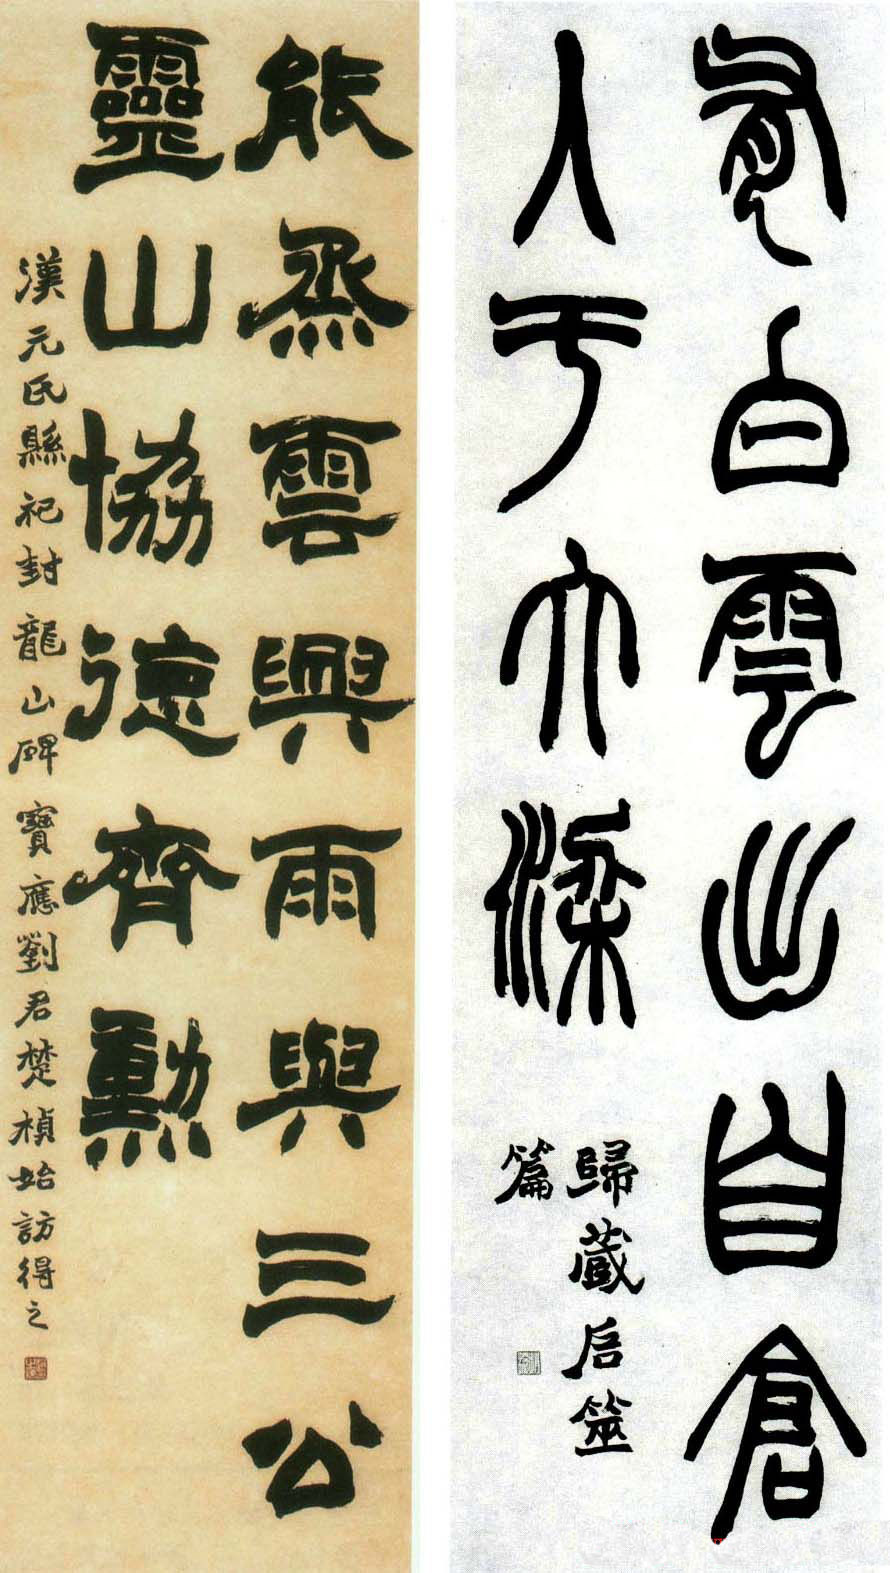 有白雲出自倉
入于大梁
歸藏启筮
篇
能烝雲興雨與三公
靈山協德齊勲
漢元氏縣祀封龍山碑寶應劉君楚楨始訪得之